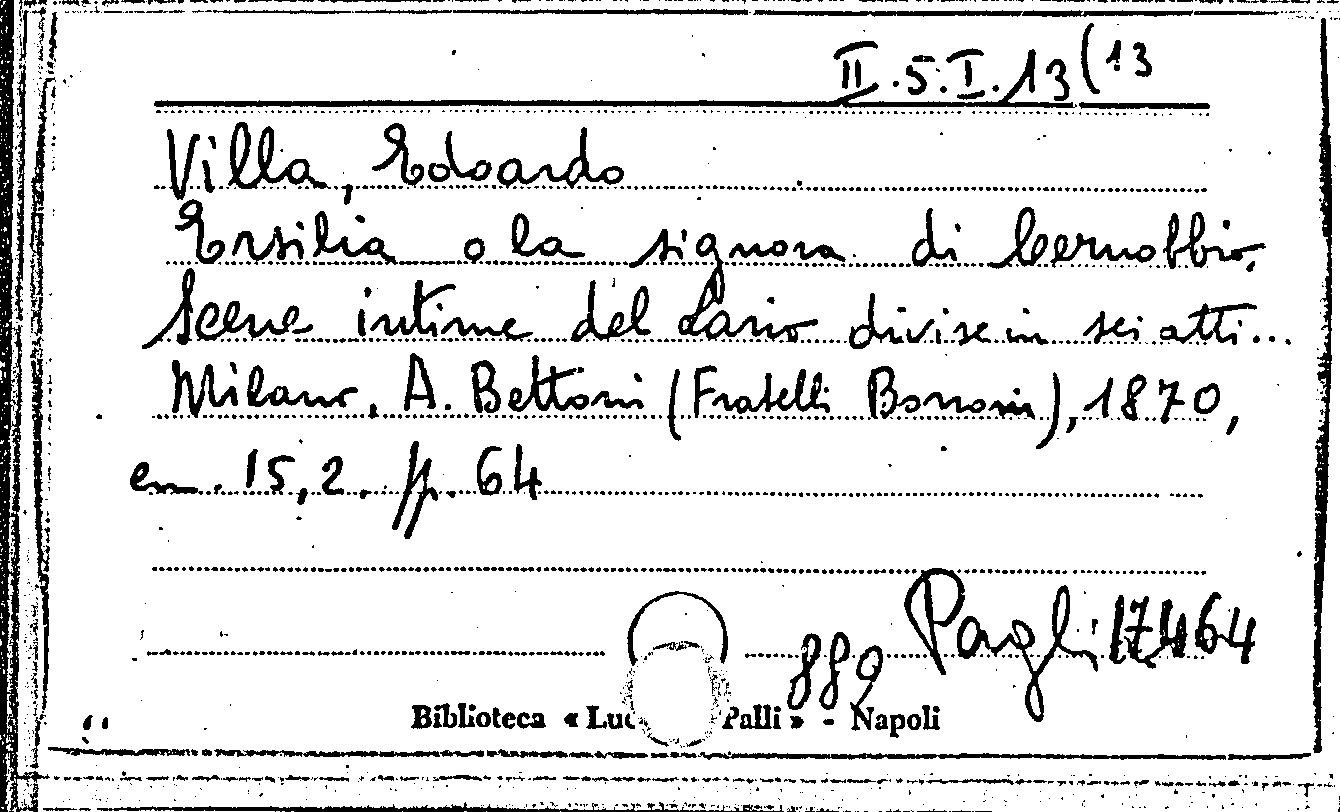 II.5.I.13(13
Villa, Edoardo
Ersilia o la signora di Cernobbio.
Scene intime del Lario divise in sei atti...
Milano, A. Bettoni (Fratelli Borroni), 1870,
cm. 15,2. pp. 64
889 Pagli 17464
Biblioteca « Luc Palli » - Napoli